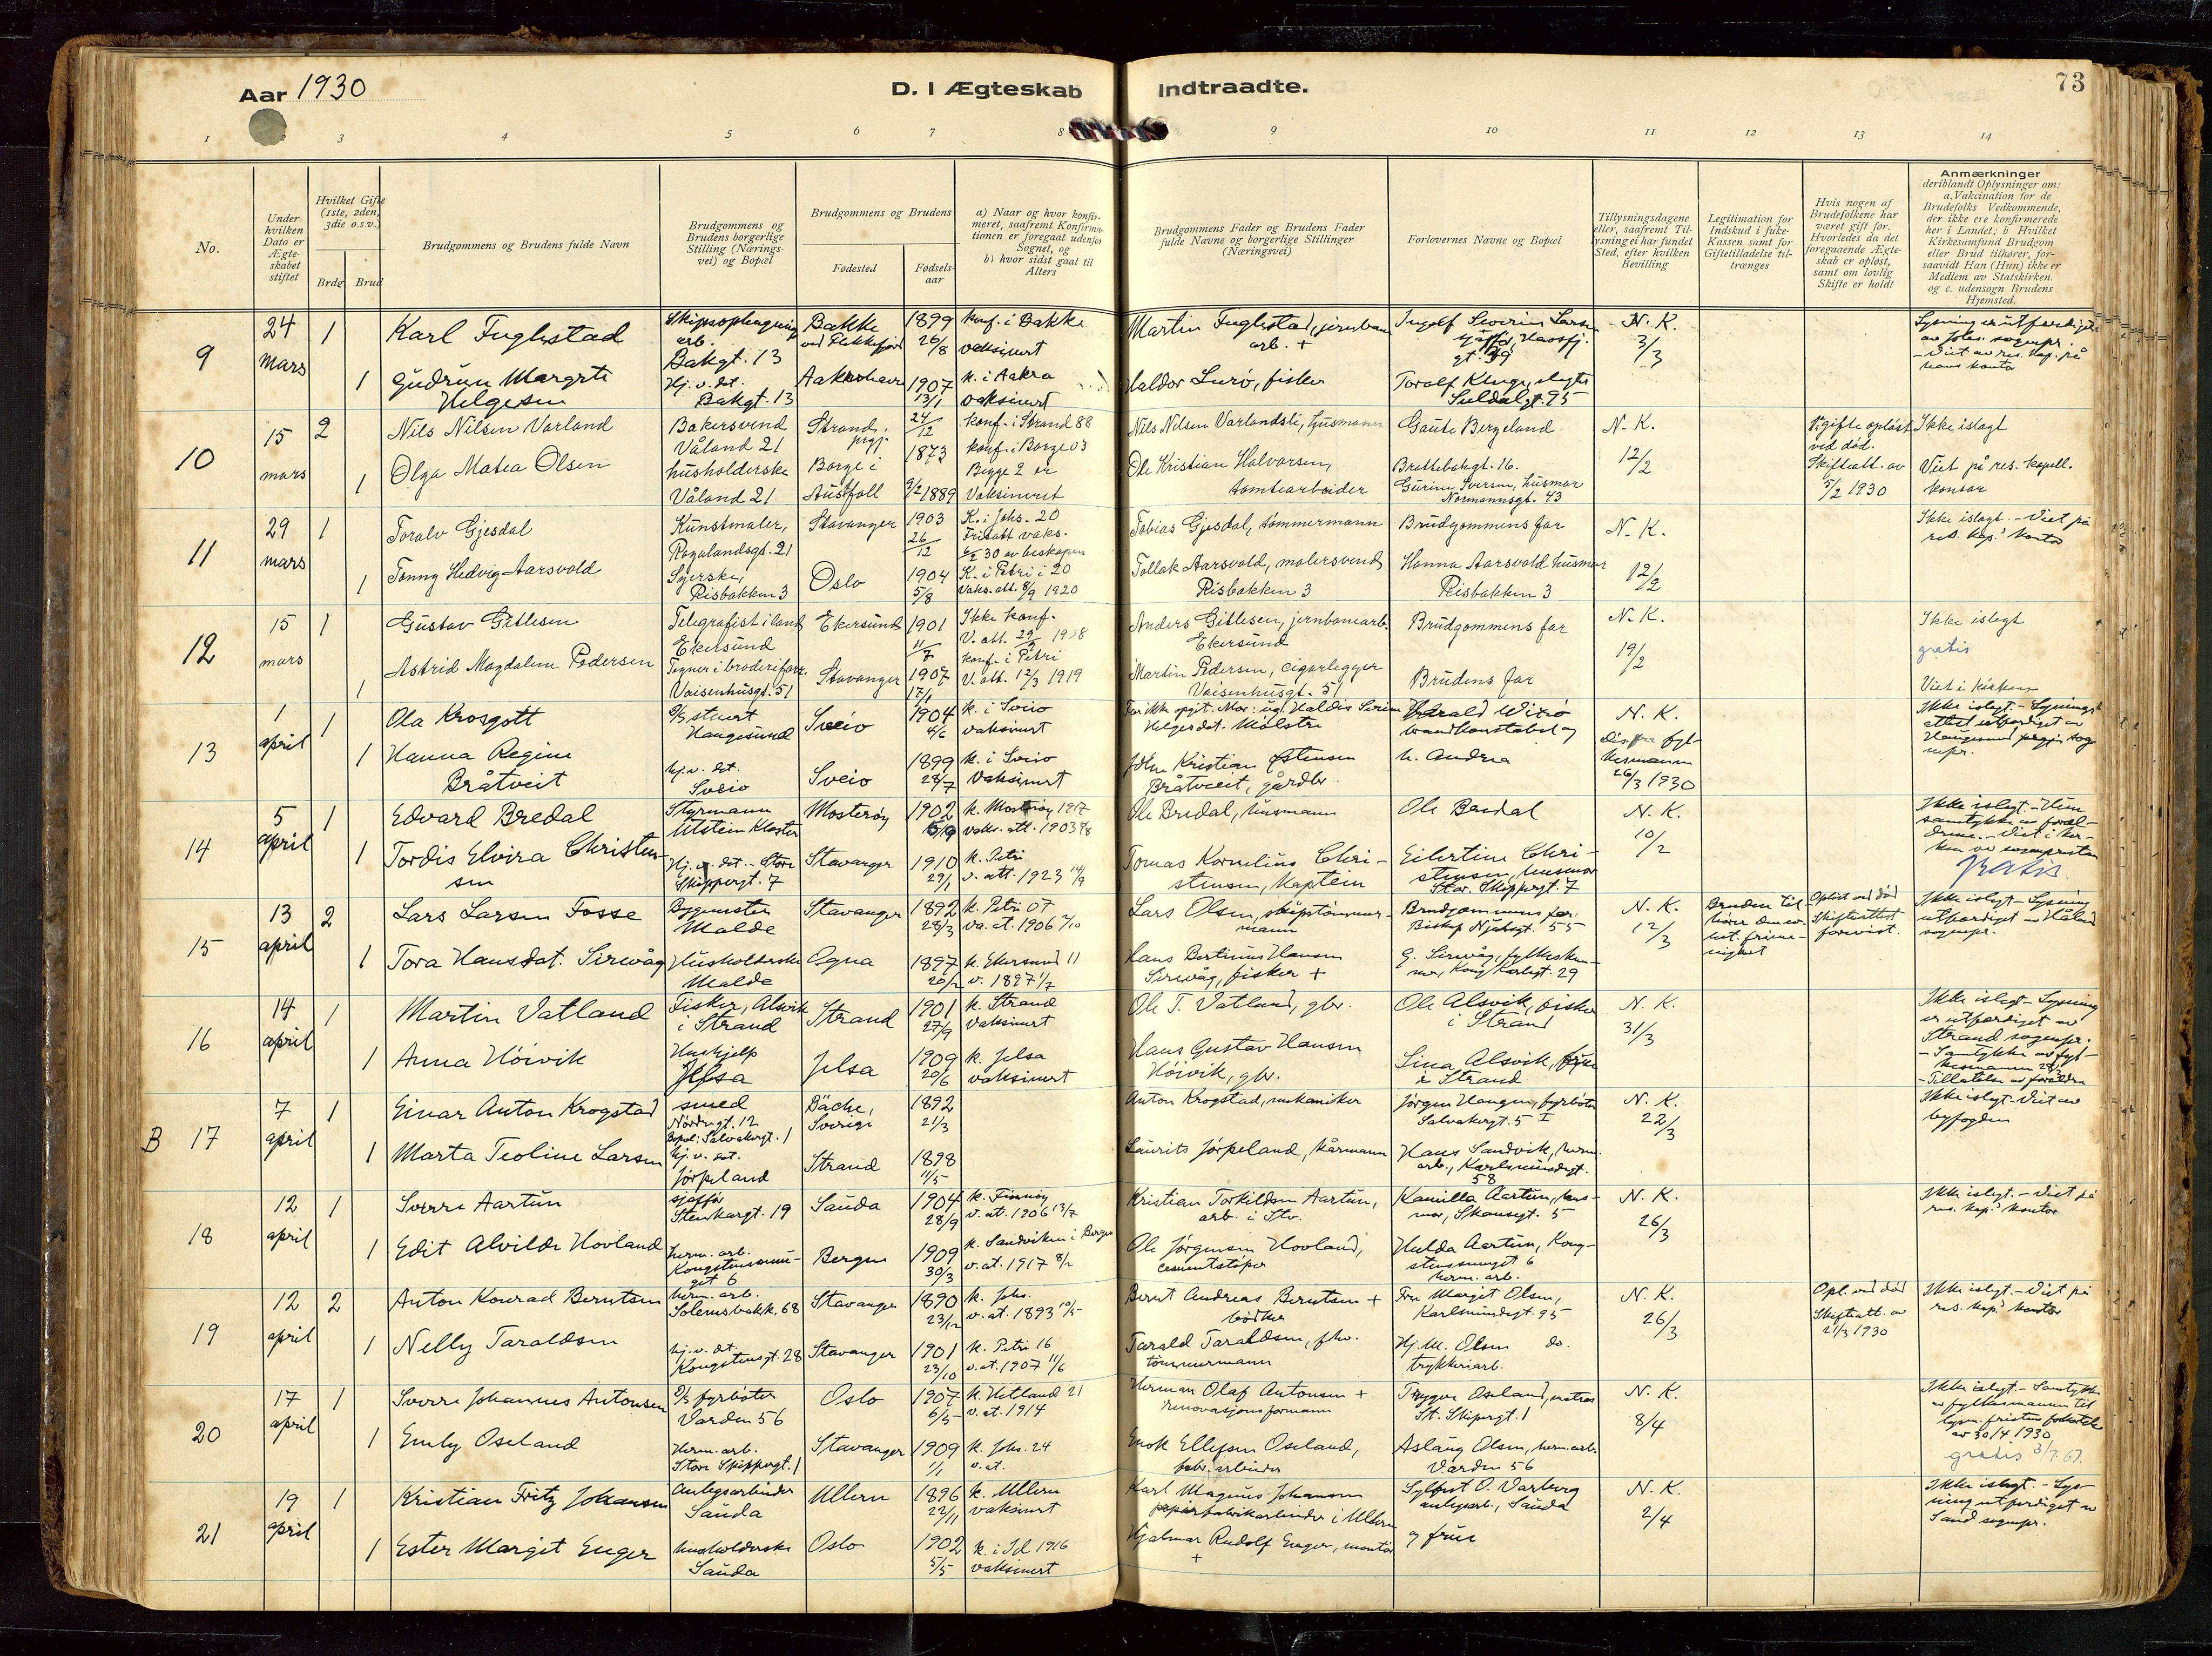 Aar 1930
D. I Ægteskab Indtraadte.
73
1 2 3 4 5 6 7 8 9 10 11 12 13 14
No.
Under hvilken Dato er Ægteskabet stiftet
Hvilket Gifte (1ste, 2den, 3die o.s.v.)
Brdg Brud
Brudgommens og Brudens fulde Navn
Brudgommens og Brudens borgerlige Stilling (Næringsvei) og Bopæl
Brudgommens og Brudens
Fødested
Fødselsaar
a) Naar og hvor konfirmeret, saafremt Konfirmationen er foregaat udenfor Sognet, og
b) hvor sidst gaat til Alters
Brudgommens Fader og Brudens Fader fulde Navne og borgerlige Stillinger (Næringsvei)
Forlovernes Navne og Bopæl
Tillysningsdagene eller, saafremt Tillysning ei har fundet Sted, efter hvilken Bevilling
Legitimation for Indskud i Enke-Kassen samt for Giftetilladelse tiltrænges
Hvis nogen af Brudefolkene har været gift før. Hvorledes da det foregaaende Ægteskab er opløst, samt om lovlig Skifte er holdt
Anmærkninger
deriblandt Oplysninger om: a. Vakcination for de Brudefolks Vedkommende, der ikke ere konfirmerede her i Landet; b Hvilket Kirkesamfund Brudgom eller Brud tilhører, forsaavidt Han (Hun) ikke er Medlem av Statskirken. og c. udensogn Brudens Hjemsted.
9 24 mars 1 Karl Fuglestad arb. Bakgt. 13 Bakke ved Flekkefjord 1899 26/8 konf. i Bakke vaksinert
Martin Fuglestad, jernbanearb. + Ingolf Severin Larsen N. K. 3/3
1 Gudrun Margrete Helgesen Hj. v. det. Bakgt. 13 1907 13/1 k. i Aakra vaksinert
Haldor Lurø, fisker Torolf Suldalgt. 95
10 15 mars 2 Nils Nilsen Varland Bakersvend Våland 21 Strand prgj. 24/12 1873 konf. i Strand 88
Nils Nilsen Varlandsli, husmann Gaute Bergeland Brattebakgt. 16. N. K. 12/2 opløst ved død. Skifteatt. av 5/2 1930 Ikke islegt Viet på res. kapell. kontor
1 Olga Matea Olsen husholderske Våland 21 Borge i Austfoll 9/2 1889 konf. i Borge 03 Begge 2 er Vaksineret
Ole Kristian Halvorsen, tomtearbeider Gurine Iversen, husmor Normannsgt. 43
11 29 mars 1 Toralv Gjesdal Kunstmaler, Rogalandsgt. 21 Stavanger 1903 26/12 K. i Johs. 20 Fritatt vaks. 6/2 30 av biskopen
Tobias Gjesdal, tømmermann Brudgommens far N. K. 12/2 Ikke islegt. - Viet på res. kap.s kontor
1 Tonny Hedvig Aarsvold Syerske, Risbakken 3 Oslo 1904 5/8 K. i Petri i 20 Vaks. att. 8/9 1920
Tollak Aarsvold, malersvend Risbakken 3 Hanna Aarsvold husmor Risbakken 3
12 15 mars 1 Gustav Gitlesen Telegrafist i land Ekersund Ekersund 1901 11/7 Ikke konf.
Anders Gitlesen, jernbanearb. Ekersund Brudgommens far N. K. 19/2 Ikke islegt gratis
1 Astrid Magdalene Pedersen Tegner i broderiforr. Vaisenhusgt. 51 Stavanger 1907 17/1 konf. i Petri V. att. 12/3 1919
Martin Pedersen, cigarlegger Vaisenhusgt. 51 Brudens far Viet i kirken
13 1 april 1 Ola Krosgott stuert Haugesund Sveio 1904 4/6 k. i Sveio vaksinert
Far ikke opgit. Mor: ug. Haldis Helgesdat. Mølstre N. K. 26/3 1930
1 Hanna Regine Bråtveit hj. v. det. Sveio Sveio 1899 28/7 k. i Sveio vaksinert
John Kristian Østensen Bråtveit, gårdbr.
14 5 april 1 Edvard Bredal Styrmann Utstein Kloster Mosterøy 1902 k. Mosterøy 1917
Ole Bredal, husmann Ole Bredal N. K. 10/2 gratis
1 Tordis Elvira Christensen Hj. v. det. Store Skippergt. 7 Stavanger 1910 29/1 k. Petri v. att. 1923
Tomas Kornelius Christensen, Kaptein Eilertine Christensen, husmor Stor. Skippergt. 7
15 13 april 2 Lars Larsen Fosse Bygmester Malde Stavanger 1892 28/3 k. Petri 07 va. at. 1906
Lars Olsen, skipstømmermann Brudgommens far. N. K. 12/3 Opløst ved død Skifteattest forevist. Ikke islegt - Lysning utferdiget av sogepr.
1 Tora Hansdat. Sirevåg Husholderske Malde Ogna 1897 k. Ekersund 11 v. 1897 1/7
Hans Bertinus Hansen Sirevåg, fisker + G. Sirevåg, Kong Karlsgt. 29
16 14 april 1 Martin Vatland Fisker, Alsvik i Strand Strand 1901 27/9 k. Strand vaksinert
Ole T. Vatland, gbr. Ole Alsvik, fisker i Strand N. K. 31/3
1 Anna Høivik Hushjelp Jelsa Jelsa 1909 20/6 k. Jelsa vaksinert
Hans Gustav Hansen Høivik, gbr. Lina Alsvik, i Strand
B 17 7 april 1 Einar Anton Krogstad smed Bäcke, Sverige 1892 21/3
Anton Krogstad, mekaniker Jørgen Haugen, fyrbøter N. K. 22/3 Ikke islegt - Viet av byfogden
1 Marta Teoline Larsen hj. v. det. Jørpeland Strand 1898 11/5
Laurits Jørpeland, kårmann Hans Sandvik, herm. arb. 58
18 12 april 1 Sverre Aartun sjaffør Stenkargt. 19 Sauda 1904 28/9 k. Finnøy v. at. 1906 13/7
Kristian Torkildsen Aartun, arb. i Stv. Kamilla Aartun, husmor, Skansegt. 5 N. K. 26/3 Ikke islegt. - Viet på res. kap.s kontor
1 Edit Alvilde Hovland herm. arb. 6 Bergen 1909 30/3 k. Sandviken i Bergen v. at. 1917 8/2
Ole Jørgensen Hovland, cementstøper Hulda Aartun, herm. arb.
19 12 april 2 Anton Konrad Berntsen herm. arb. 68 Stavanger 1890 23/12 k. Johs. v. at. 1893 10/5
Bernt Andreas Berntsen + bødker Fru Margit Olsen, 95 N. K. 26/3 Opl. ved død Skifteatt. av 21/3 1930 Ikke islegt. - Viet på res. kap.s kontor
1 Nelly Taraldsen hj. v. det. Kongstensgt. 28 Stavanger 1901 23/10 k. Petri 16 v. at. 1907 11/6
Tarald Taraldsen, fhv. tømmermann Hj. M. Olsen do. trykkeriarb.
20 17 april 1 Sverre Johannes Antonsen fyrbøter Varden 56 Oslo 1907 6/5 k. Hetland 21 v. at. 1914
Herman Olaf Antonsen + renovasjonsformann Trygve Oseland, matros St. Skipergt. 1 N. K. 8/4 av 30/4 1930
1 Emly Oseland Herm. arb. Store Skippergt. 1 Stavanger 1909 1/1 k. Johs. 24 v. at.
Enok Ellefsen Oseland, fabr. arbeider Aslaug Olsen, herm. arb. Varden 56 gratis
21 19 april 1 Kristian Fritz Johansen Anlegsarbeider Sauda Ullern 1896 22/11 k. Ullern vaksinert
Karl Magnus Johansen papirfabrikarbeider i Ullern Sylfest O. Varberg anlegsarb., Sauda N. K. 2/4 Ikke islegt. - Lysning utferdiget av Sand sogepr.
1 Ester Margit Enger husholderske Sauda Oslo 1902 5/5 1916 vaksinert
Hjalmar Rudolf Enger, montør + og frue